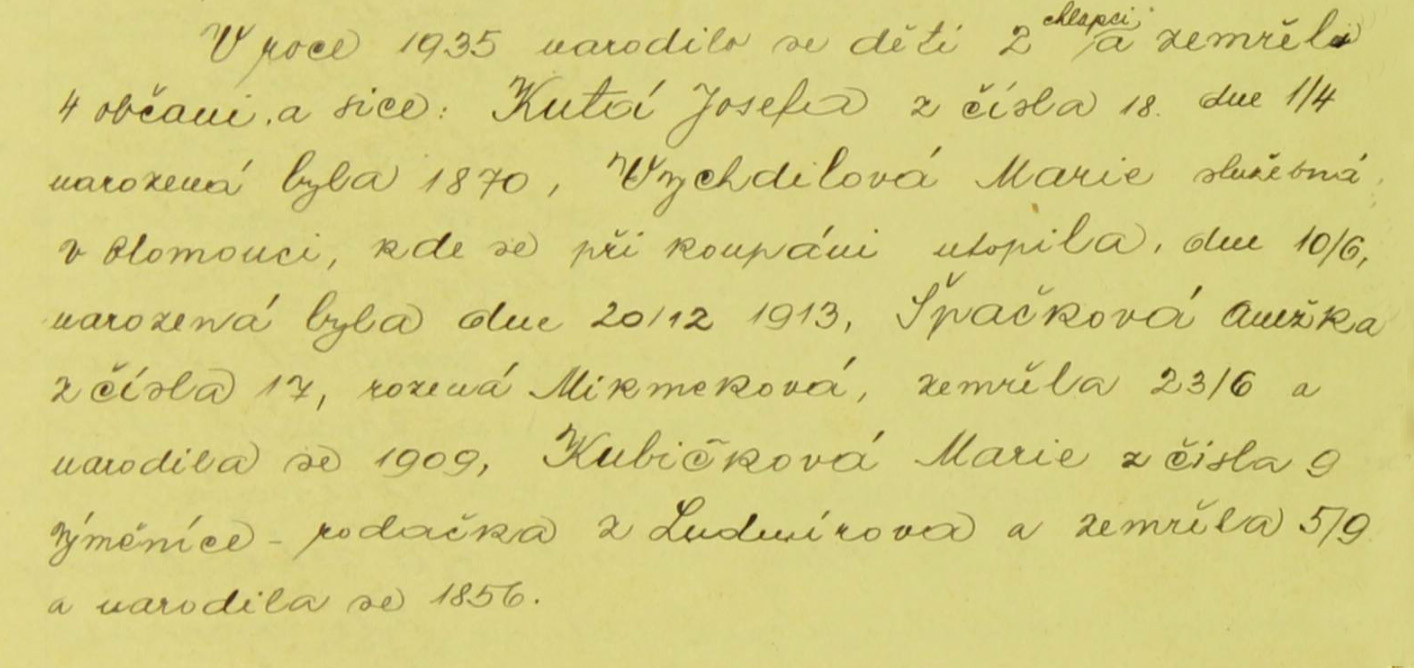 V roce 1935 narodilo se děti 2 chlapci a zemřeli
4 občani, a sice: Kutá Josefa z čísla 18. dne 1/4
narozená byla 1870, Vychdilová Marie služebná
v Olomouci, kde se při koupáni utopila, dne 10/6,
narozená byla dne 20/12 1913, Špačková Anežka
z čísla 17, rozená Mikmeková, zemřela 23/6 a
narodila se 1909, Kubíčková Marie z čísla 9
výměnice - rodačka z Ludmírova a zemřela 5/9
a narodila se 1856.